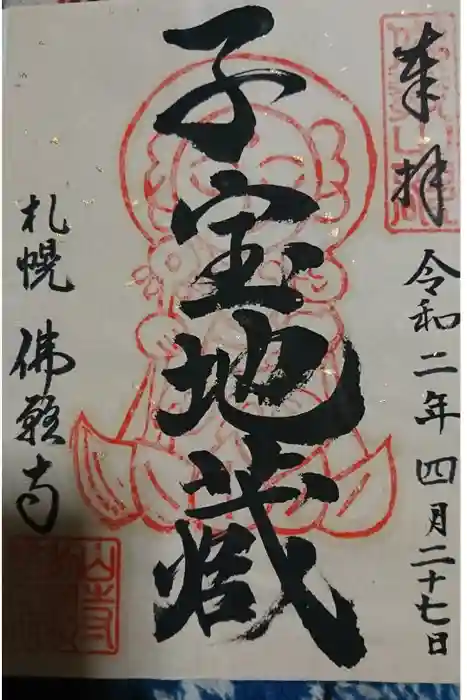 奉拝
令和二年四月二十七日
子宝地蔵
札幌 佛願寺